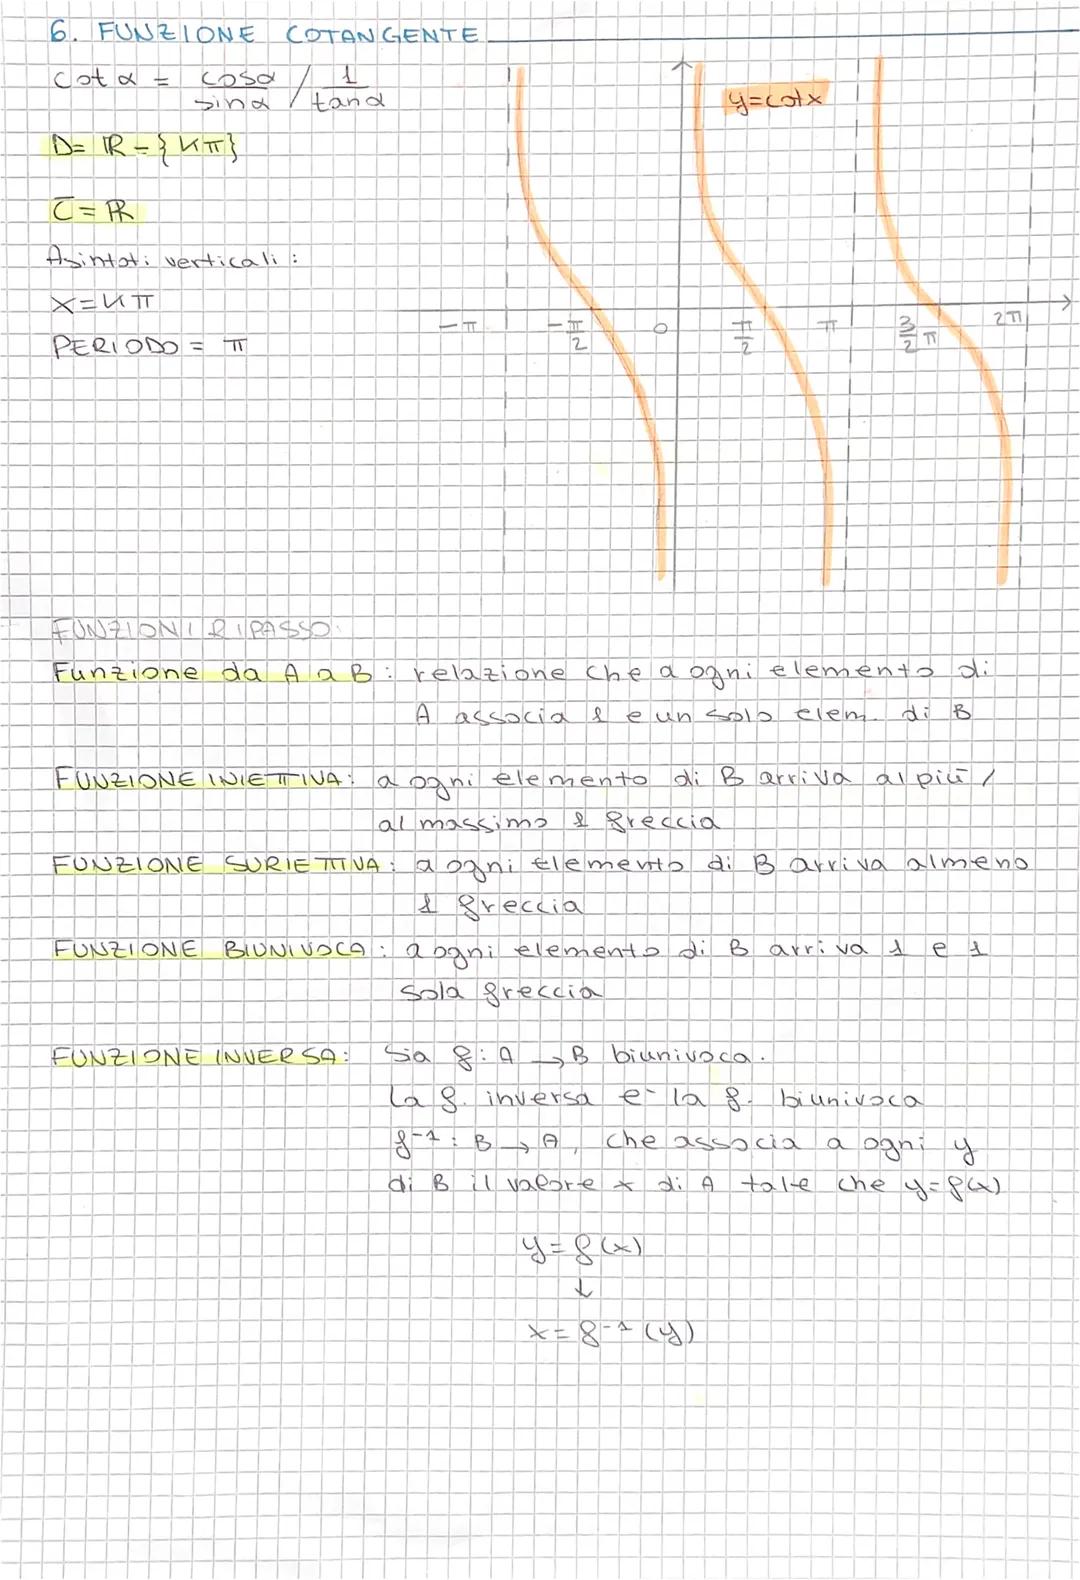 6. FUNZIONE COTANGENTE
cot α = cosα / sinα / 1 / tanα
y=cotx
D= ℝ - { kπ}
C = ℝ
Asintoti verticali :
x = kπ
PERIODO = π
-π -π/2 0 π/2 π 3/2 π 2π
FUNZIONI RIPASSO:
Funzione da A a B : relazione che a ogni elemento di
A associa 1 e un solo elem. di B
FUNZIONE INIETTIVA: a ogni elemento di B arriva al più /
al massimo 1 freccia
FUNZIONE SURIETTIVA: a ogni elemento di B arriva almeno
1 freccia
FUNZIONE BIUNIVOCA : a ogni elemento di B arriva 1 e 1
sola freccia
FUNZIONE INVERSA: Sia f: A → B biunivoca.
La f. inversa e- la f. biunivoca
f⁻¹ : B → A, che associa a ogni y
di B il valore x di A tale che y=f(x)
y = f(x)
↓
x = f⁻¹ (y)